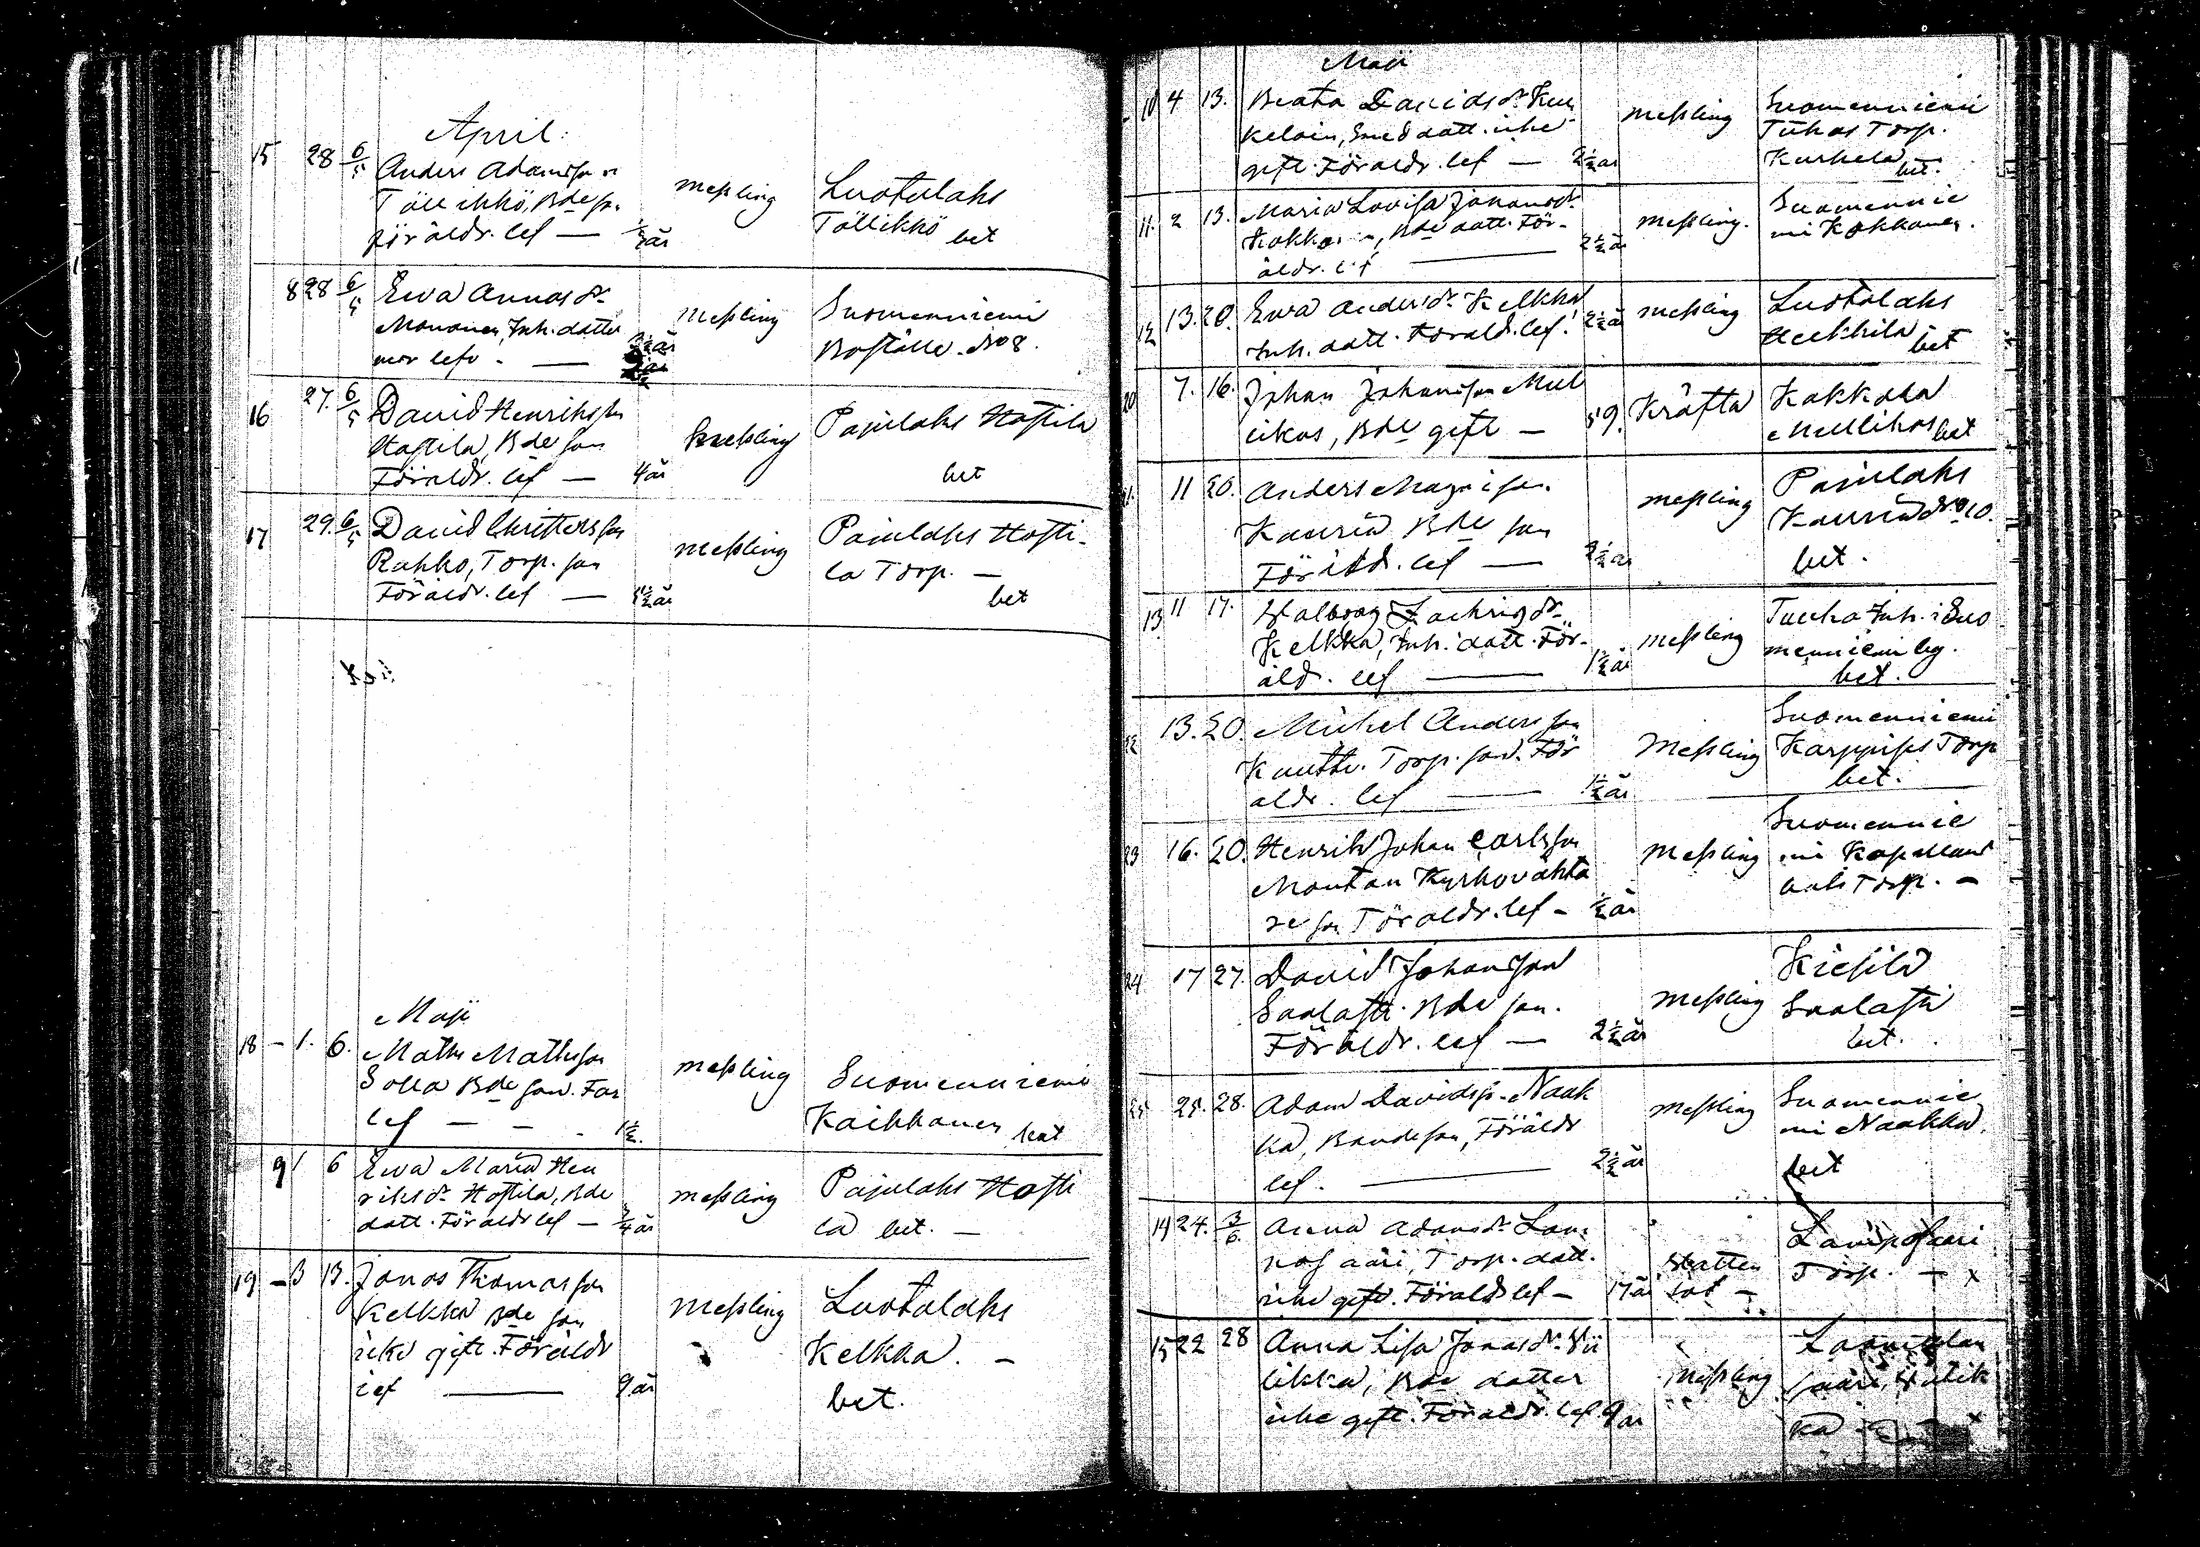 April.
15 28 6/5 Anders Adamsson
Töllikkö, Bde son.
föräldr. lef — ½ år
Messling
Luotolaks
Töllikkö bet
8 28 6/5 Ewa Annas dr
Mononen, Inh. datter
mor lefv. —
Messling
Suomenniemi
Boställe No 8.
16 27. 6/5 David Henriksson
Hastila, Bde son
Föräldr. lef — 4 år
Messling
Pajulaks Hastila
bet
17 29. 6/5 David Christersson
Rahko, Torp. son
Föräldr. lef —
Messling
Pajulaks Hasti-
la Torp. —
bet
Maji
18 — 1. 6. Maths Mathsson
Bde son. Far
lef — — 1½.
Messling
Suomenniemi
Kaihhanen bet
9 1 6 Ewa Maria Hen
riksdr Hastila, Bde
datt. Föräldr lef — ¾ år
Messling
Pajulaks Hasti
la bet. —
19 — 3 13. Jonas Thomasson
Kelkka Bde son
icke gift. Föräldr
lef — 9 år
Messling
Luotolaks
Kelkka. —
bet.
Maji
10 4 13. Beata Davidsdr Kur
kelain, Smed datt. icke
gift. Föräldr. lef — 2½ år
Messling
Suomenniemi
Tuhas Torp.
Kurkela bet.
11. 2 13. Maria Lovisa Johansdr
Kokko, Bde datt. För-
äldr. lef — 2½ år
Messling.
Suomennie
mi Kokkonen.
12 13. 20. Ewa Andersdr Kelkka
Inh. datt. Förald. lef. 2½ år
Messling
Luotolaks
Heikkilä bet
20 7. 16. Johan Johansson Mul
likas, Bde gift — 59.
Kräfta
Kokkola
Mullikas bet
21. 11 20. Anders Magnisson.
Kauria Bde son
Föräldr. lef — 2½ år
Messling
Pajulaks
Kauria No 10.
bet.
13 11 17. Walborg Zachrisdr
Kelkka, Inh. datt. För-
äld. lef — 1½ år
Messling
Tuuha Inh. i Suo
menniemi by.
bet.
22 13. 20. Michel Andersson
Kautto. Torp. son. För
äldr. lef — 1½ år
Messling
Suomenniemi
Karppiss Torp
bet.
23 16. 20. Henrik Johan Carlsson
Montan Kyrkovakta
re son Föräldr. lef — ½ år
Messling
Suomennie
mi Kapellans
bols Torp. —
24 17 27. David Johansson
Saalasti. Bde son.
Föräldr. lef — 2½ år
Messling
Kiesilä
Saalasti
bet.
25. 25. 28. Adam Davidss. Naak
ka, Bondeson, Föräldr
lef. — 2½ år
Messling
Suomennie
mi Naakka
bet
14 24. 3/6. Anna Adamsdr Lam
posaari, Torp. datt.
icke gift. Föräldr lef — 17 år
Vatten
sot —
Lamposaari
Torp. — x
15 22 28 Anna Lisa Jonasdr
likka, Bde datter
icke gift. Föräldr. lef 9 år
Messling
saari,
ka x